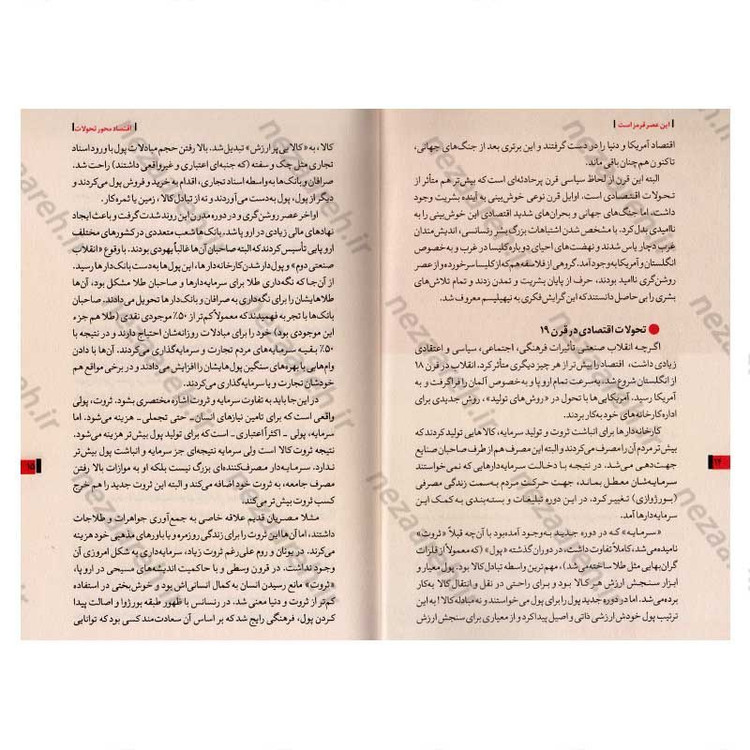 این عصر قرمز است
اقتصاد آمریکا و دنیا را در دست گرفتند و این برتری بعد از جنگ‌های جهانی،
تاکنون هم‌چنان باقی ماند.
البته این قرن از لحاظ سیاسی قرن پرحادثه‌ای است که بیش‌تر هم متأثر از
تحولات اقتصادی است. اوایل قرن نوعی خوش‌بینی به آینده بشریت وجود
داشت. اما جنگ‌های جهانی و بحران‌های شدید اقتصادی این خوش‌بینی را به
ناامیدی بدل کرد. با مشخص شدن اشتباهات بزرگ بشر رنسانسی، اندیش‌مندان
غرب دچار یاس شدند و نهضت‌های احیای دوباره کلیسا در غرب و به‌خصوص
انگلستان و آمریکا به‌وجود آمد. گروهی از فلاسفه هم که از کلیسا سرخورده و از عصر
روشن‌گری ناامید بودند، حرف از پایان بشریت و تمدن زدند و تمام تلاش‌های
بشری را بی حاصل دانستند که این گرایش فکری به نیهیلیسم معروف شد.
تحولات اقتصادی در قرن ۱۹
اگرچه انقلاب صنعتی تأثیرات فرهنگی، اجتماعی، سیاسی و اعتقادی
زیادی داشت، اقتصاد را بیش‌تر از هر چیز دیگری متأثر کرد. انقلاب در قرن ۱۸
از انگلستان شروع شد، به‌سرعت تمام اروپا و به‌خصوص آلمان را فراگرفت و به
آمریکا رسید. آمریکایی‌ها با تحول در «روش‌های تولید»، روش جدیدی برای
اداره کارخانه‌های خود به‌کار بردند.
کارخانه‌دارها برای انباشت ثروت و تولید سرمایه، کالاهایی تولید کردند که
بیش‌تر مردم آن را مصرف می‌کردند و البته این مصرف هم از طرف صاحبان صنایع
جهت‌دهی می‌شد. در نتیجه با دخالت سرمایه‌دارهایی که نمی‌خواستند
سرمایه‌شان معطل بماند، جهت حرکت مردم به‌سمت زندگی مصرفی
(بورژوازی) تغییر کرد. در این دوره تبلیغات و بسته‌بندی به کمک این
سرمایه‌دارها آمد.
«سرمایه» که در دوره جدید به‌وجود آمده بود با آن‌چه قبلاً «ثروت»
نامیده می‌شد، کاملاً تفاوت داشت. در دوران گذشته «پول» (که معمولاً از فلزات
گران‌بهایی مثل طلا ساخته می‌شد)، مهم‌ترین واسطه تبادل کالا بود. پول معیار و
ابزار سنجش ارزش هر کالا بود و برای راحتی در نقل و انتقال کالا به‌کار
برده می‌شد. اما در دوره جدید پول را برای پول می خواستند و نه مبادله کالا! به این
ترتیب پول خودش ارزشی ذاتی و اصیل پیدا کرد و از معیاری برای سنجش ارزش
اقتصاد محور تحولات
کالا، به «کالایی پر ارزش» تبدیل شد. بالا رفتن حجم مبادلات پول با ورود اسناد
تجاری مثل چک و سفته (که جنبه‌ای اعتباری و غیرواقعی داشتند) راحت شد.
صرافان و بانک‌ها به‌واسطه اسناد تجاری، اقدام به خرید و فروش پول می‌کردند و
دیگر از پول، پول به‌دست می‌آوردند و نه از تبادل کالا، زمین یا ثمره کار.
اواخر عصر روشن‌گری و در دوره مدرن این روند شدت گرفت و باعث ایجاد
نهادهای مالی زیادی در اروپا شد. بانک‌ها شعب متعددی در کشورهای مختلف
اروپایی تأسیس کردند که البته صاحبان آن‌ها غالباً یهودی بودند. با وقوع «انقلاب
صنعتی دوم» و پول‌دار شدن کارخانه‌دارها، این پول‌ها به‌دست بانک‌دارها رسید.
از آن‌جا که نگه‌داری طلا برای سرمایه‌دارها و صاحبان طلا مشکل بود، آن‌ها
طلاهایشان را برای نگه‌داری به صرافان و بانک‌دارها تحویل می‌دادند. صاحبان
بانک‌ها با تجربه فهمیدند که معمولاً کم‌تر از ۵۰٪ موجودی نقدی (طلا هم جزء
این موجودی بود) خود را برای مبادلات روزانه‌شان احتیاج دارند و در نتیجه با
۵۰٪ بقیه سرمایه‌های مردم تجارت و سرمایه‌گذاری می‌کردند. آن‌ها با دادن
وام‌هایی با بهره‌های سنگین پول‌هایشان را افزایش می‌دادند و در برخی مواقع هم
خودشان تجارت و یا سرمایه‌گذاری می‌کردند.
در این‌جا باید به تفاوت سرمایه و ثروت اشاره مختصری بشود. ثروت، پولی
واقعی است که برای تامین نیازهای انسان- حتی تجملی- هزینه می‌شود. اما
سرمایه، پولی - اکثراً اعتباری- است که برای تولید پول بیش‌تر هزینه می‌شود.
نتیجه ثروت کالا است ولی سرمایه نتیجه‌ای جز سرمایه و انباشت پول بیش‌تر
ندارد. سرمایه‌دار مصرف‌کننده‌ای بزرگ نیست بلکه او به موازات بالا رفتن
مصرف جامعه، به ثروت خود اضافه می‌کند و البته این ثروت جدید را هم خرج
کسب ثروت بیش‌تر می‌کند.
مثلا مصریان قدیم علاقه خاصی به جمع‌آوری جواهرات و طلاجات
داشتند، اما آن‌ها این ثروت را برای زندگی روزمره و یا باورهای مذهبی خود هزینه
می‌کردند. در یونان و روم علی‌رغم ثروت زیاد، سرمایه‌داری به شکل امروزی آن
وجود نداشت. در قرون وسطی و با حاکمیت اندیشه‌های مسیحی در اروپا،
«ثروت» مانع رسیدن انسان به کمال انسانی‌اش بود و خوش‌بختی در استفاده
کم‌تر از ثروت و دنیا معنی شد. در رنسانس با ظهور طبقه بورژوا و اصالت پیدا
کردن پول، فرهنگی رایج شد که بر اساس آن سعادت‌مند کسی بود که توانایی
۱۴
۱۵
nezaareh.ir